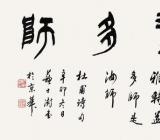 多師
雅轉益
多師是
汝師
杜甫詩句
辛卯六月
蘇士澍書
於京華